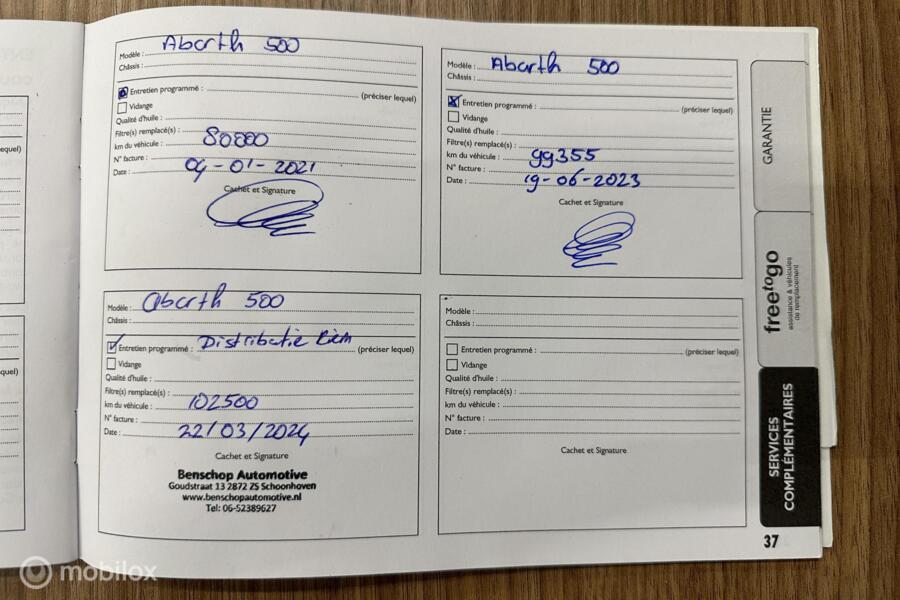 Modèle : Abarth 500
Châssis :
Entretien programmé : (préciser lequel)
Vidange
Qualité d'huile :
Filtre(s) remplacé(s) :
km du véhicule : 80000
N° facture :
Date : 04-01-2021
Cachet et Signature
Modèle : Abarth 500
Châssis :
Entretien programmé : (préciser lequel)
Vidange
Qualité d'huile :
Filtre(s) remplacé(s) :
km du véhicule : 99355
N° facture :
Date : 19-06-2023
Cachet et Signature
Modèle : Abarth 500
Châssis :
Entretien programmé : Distributie Riem (préciser lequel)
Vidange
Qualité d'huile :
Filtre(s) remplacé(s) :
km du véhicule : 102500
N° facture :
Date : 22/03/2024
Cachet et Signature
Benschop Automotive
Goudstraat 13 2872 ZS Schoonhoven
www.benschopautomotive.nl
Tel: 06-52389627
Modèle :
Châssis :
Entretien programmé : (préciser lequel)
Vidange
Qualité d'huile :
Filtre(s) remplacé(s) :
km du véhicule :
N° facture :
Date :
Cachet et Signature
GARANTIE
freetogo
assistance & véhicules
de remplacement
SERVICES
COMPLÉMENTAIRES
37
mobilox